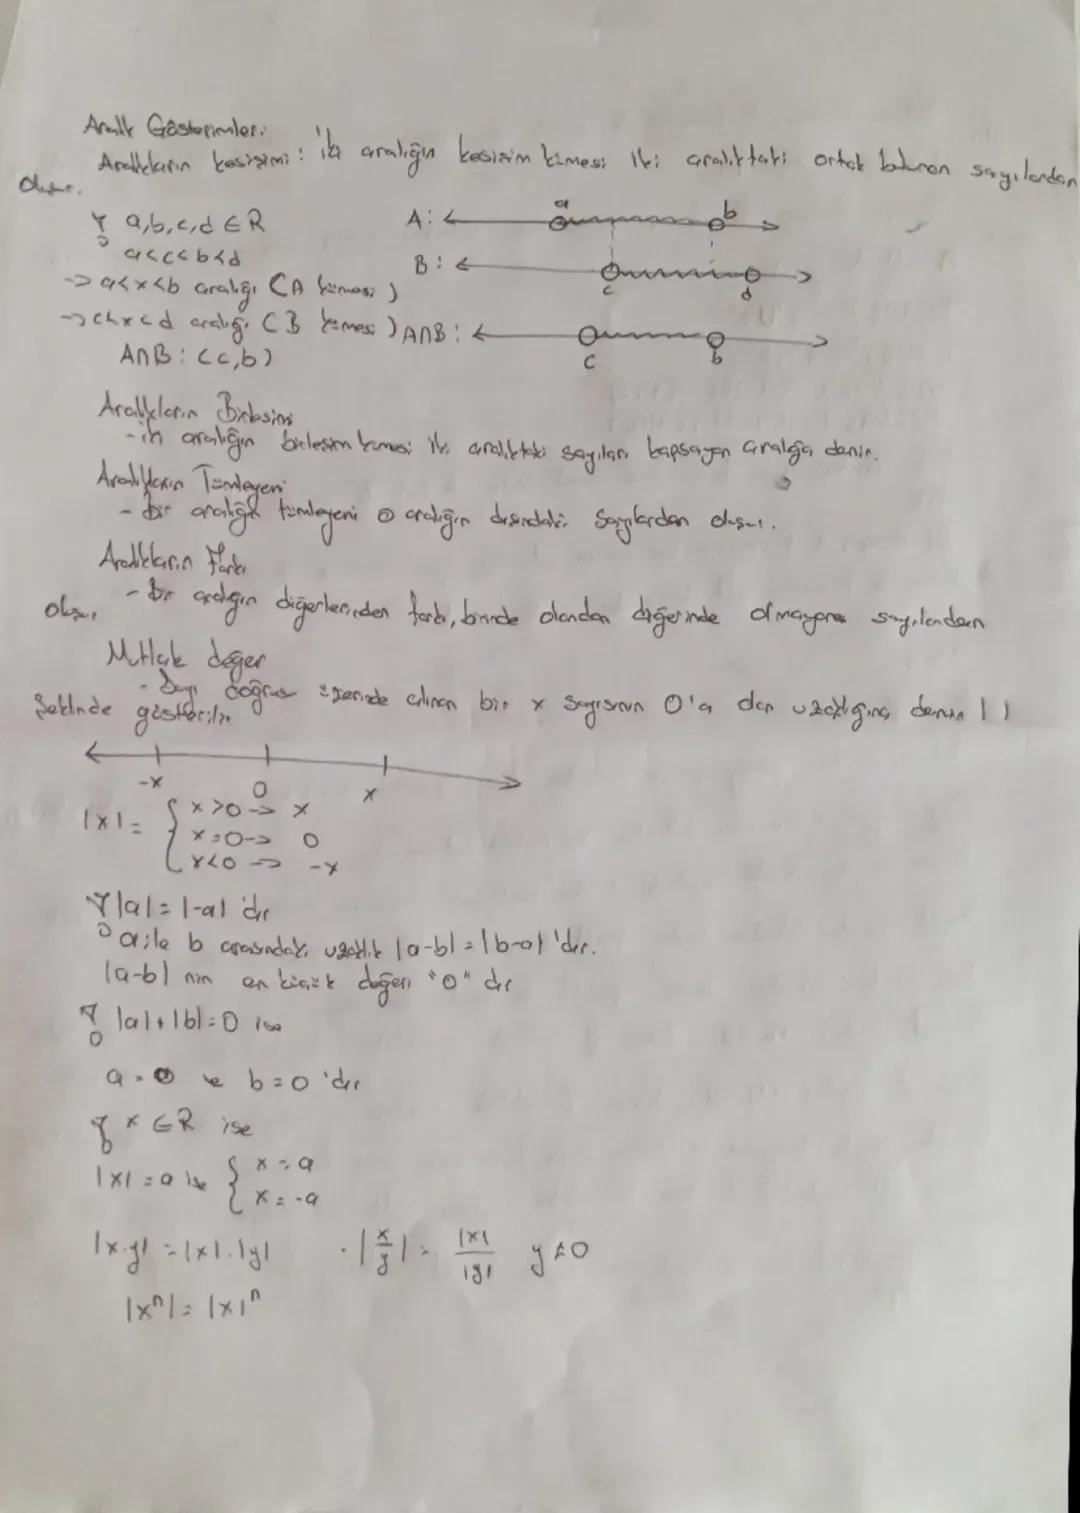 Aralık Gösterimleri
Aralıkların kesişimi: iki aralığın kesişim kümesi iki aralıktaki ortak bulunan sayılardan
oluşur.
a,b,c,d ∈ R
a<c<b<d
-> a<x<b aralığı (A kümesi)
-> c<x<d aralığı (B kümesi)
A∩B: (c,b)
A: a b
B: c d
A∩B: c b
Aralıkların Birleşimi
- iki aralığın birleşim kümesi iki aralıktaki sayıları kapsayan aralığa denir.
Aralıkların Tümleyeni
- bir aralığın tümleyeni o aralığın dışındaki sayılardan oluşur.
Aralıkların Farkı
- bir aralığın diğerlerinden farkı, birinde olandan diğerinde olmayana sayılardan
oluşur
Mutlak değer
- Sayı doğrusu üzerinde alınan bir x sayısının 0'a dan uzaklığına denir | |
Şeklinde gösterilir
-x 0 x
|x| = { x>0 -> x
x=0 -> 0
x<0 -> -x
|a| = |-a| 'dır
a ile b arasındaki uzaklık |a-b| = |b-a| 'dır.
|a-b| nın en küçük değeri "0" dır
|a|+|b|=0 ise
a=0 ve b=0 'dır
x ∈ R ise
|x| = a ise { x = a
x = -a
|x.y| = |x|.|y| · |x/y| = |x|/|y| y≠0
|xⁿ| = |x|ⁿ